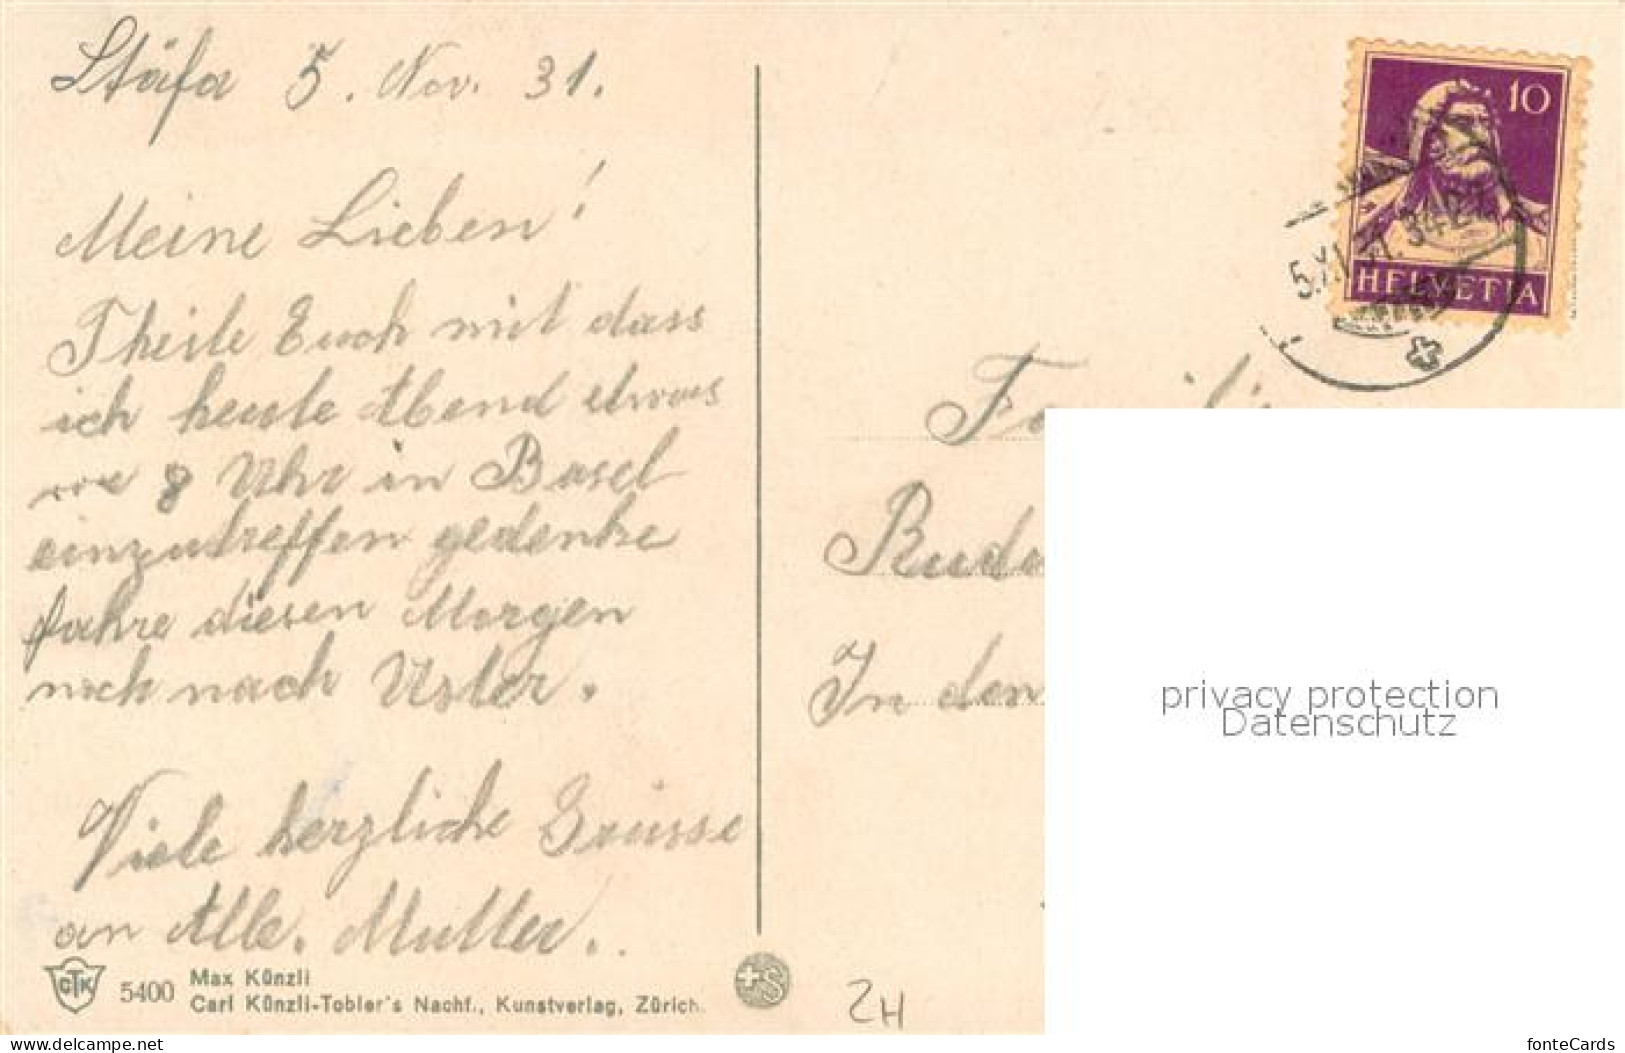 Stäfa 5. Nov. 31.
Meine Lieben!
Theile Euch mit dass
ich heute Abend etwas
vor 8 Uhr in Basel
einzutreffen gedenke
fahre diesen Morgen
noch nach Uster.
Viele herzliche Grüsse
an Alle. Mutter.
CTK 5400 Max Künzli
Carl Künzli-Tobler's Nachf., Kunstverlag, Zürich.
+S
ZH
10
HELVETIA
5.XI.31.
Fa
Rudo
In den
privacy protection
Datenschutz
www.delcampe.net
fonteCards